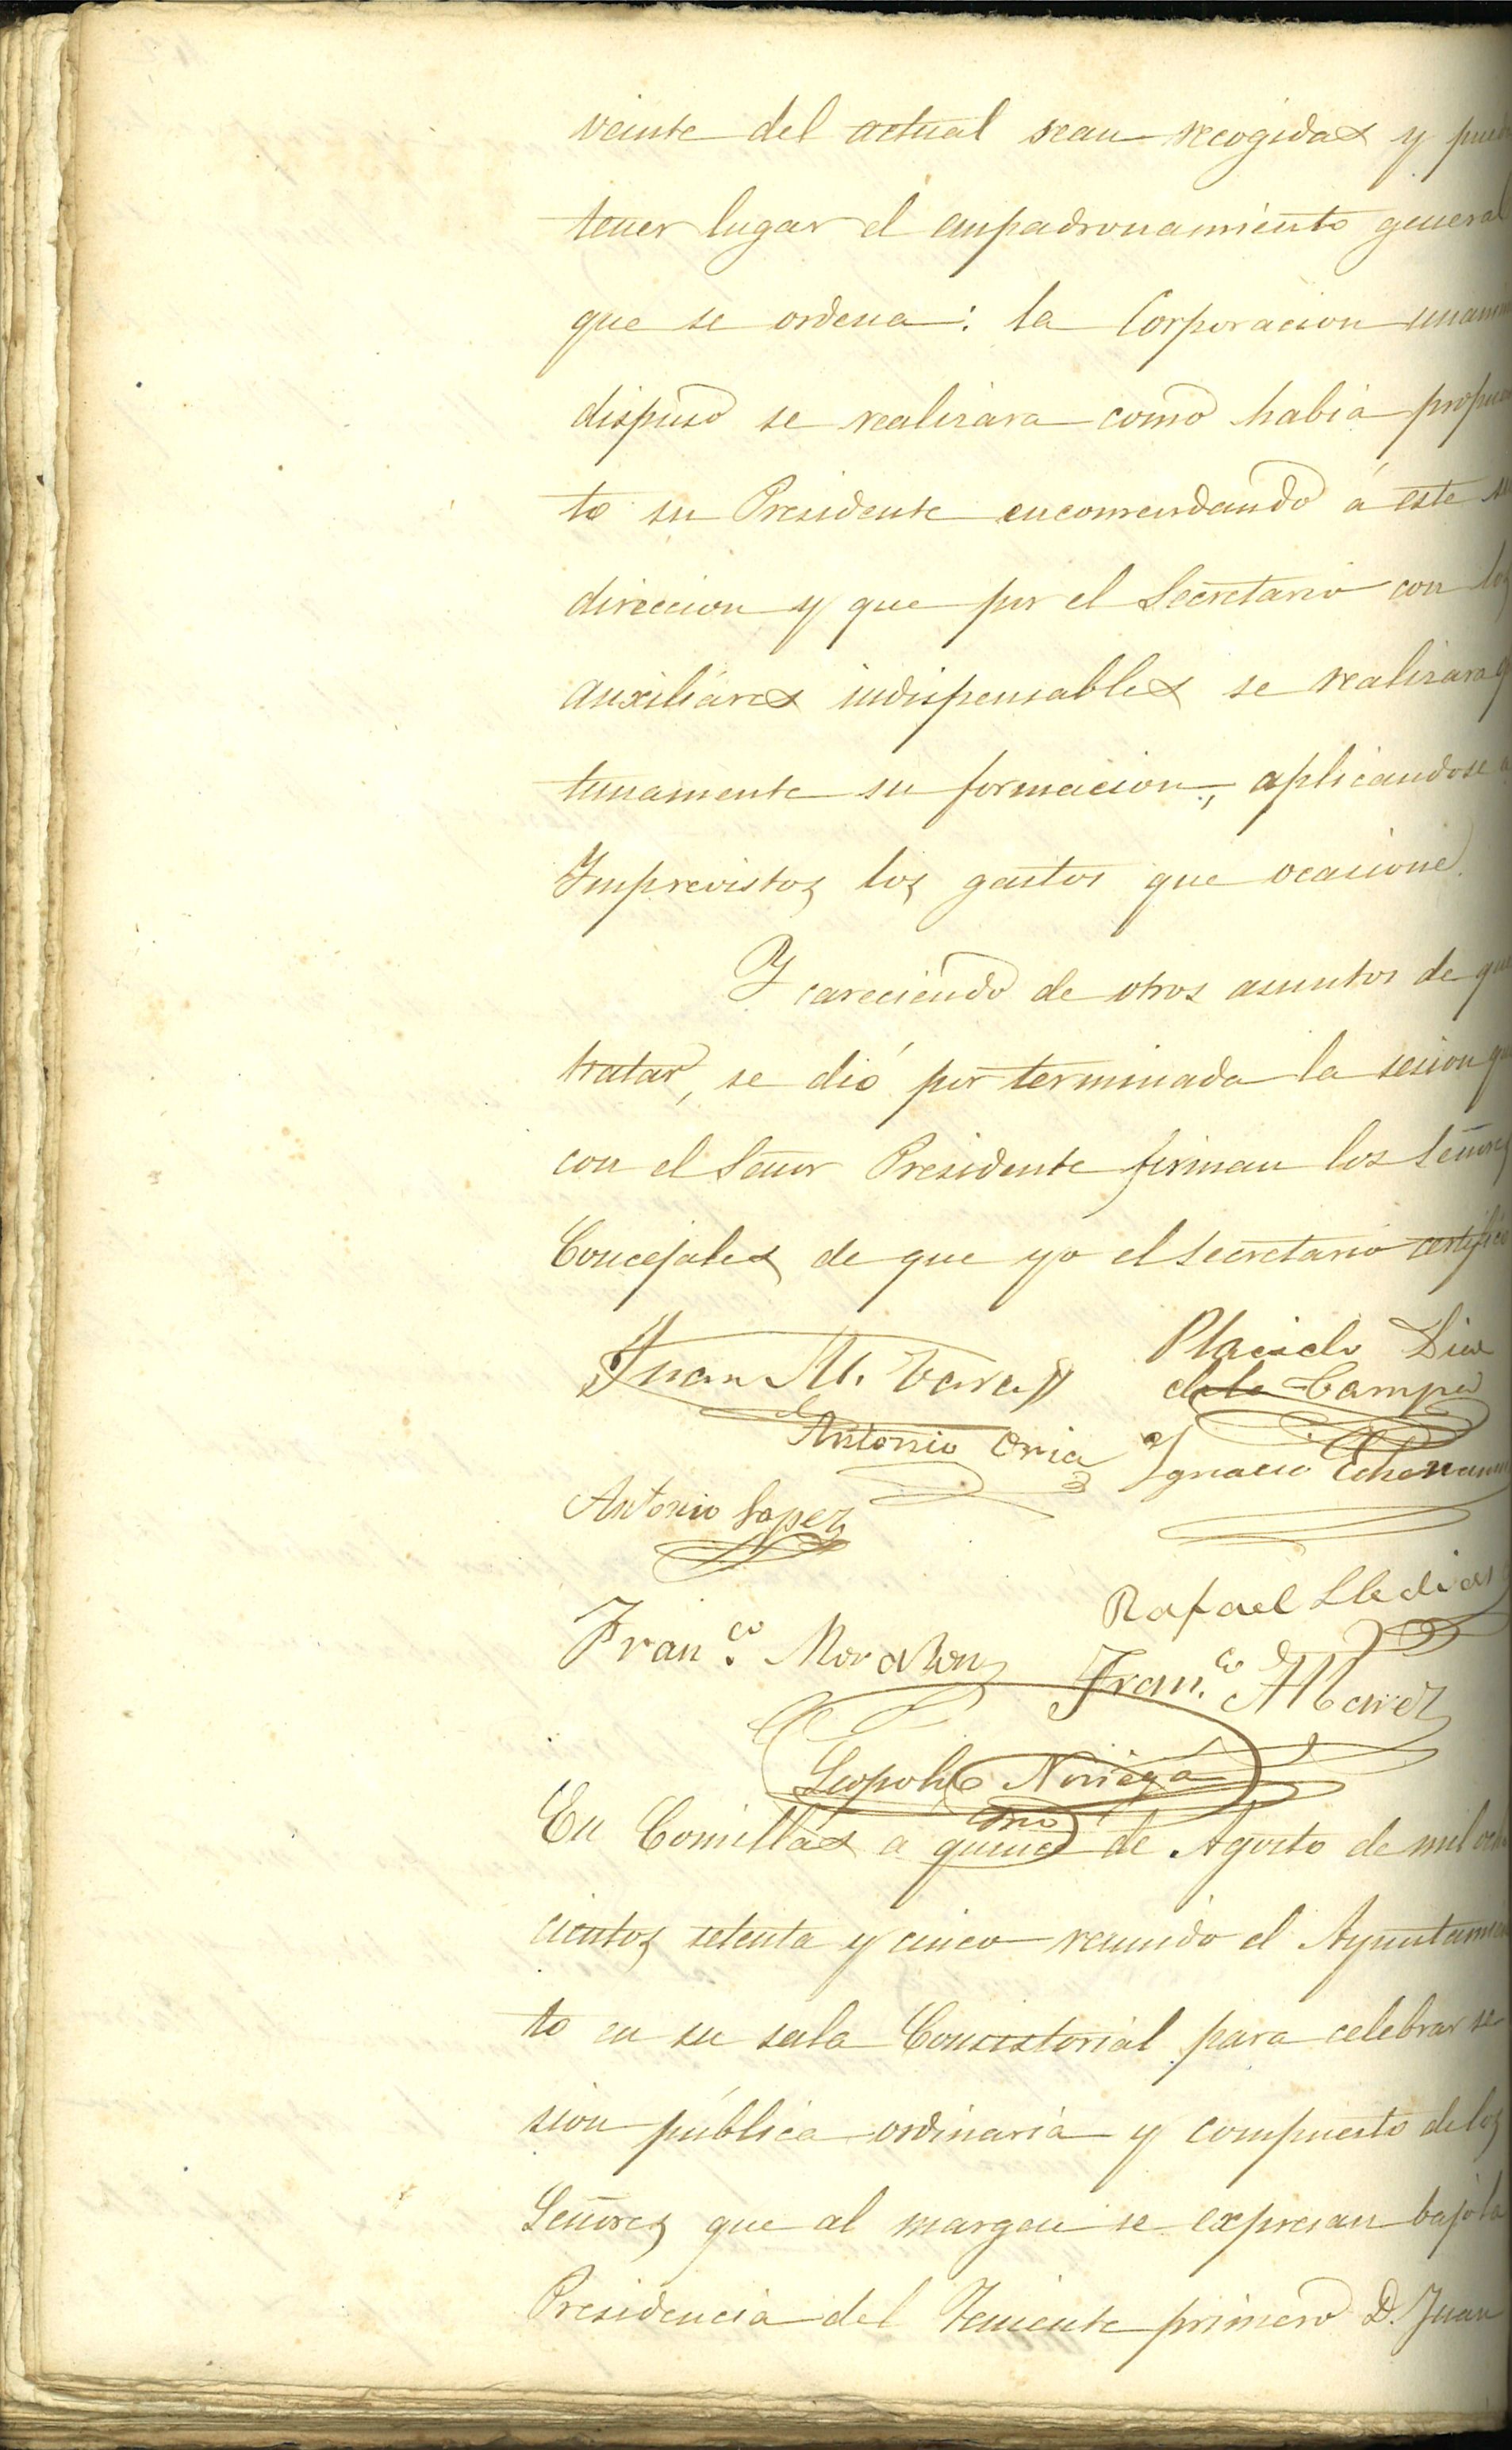 veinte del actual sean recogidas y pue
tener lugar el empadronamiento general
que se ordena: la Corporacion unanim
dispuso se realizara como habia propues
to su Presidente encomendando á este su
direccion y que por el Secretario con los
auxiliares indispensables se realizara
tunamente su formacion, aplicandose a
Imprevistos los gastos que ocasione.
Y careciendo de otros asuntos de que
tratar, se dió por terminada la sesion que
con el Señor Presidente firman los Señores
Concejales de que yo el Secretario certifico
Juan M. Placido Diaz
de la Campa
Antonio Oria Ignacio
Antonio Lopez
Rafael
Fran.co Fran.co Alvarez
Leopoldo Noriega
Srio
En Comillas a quince de Agosto de mil ocho
cientos setenta y cinco reunido el Ayuntamien
to en su sala Consistorial para celebrar se
sion pública ordinaria y compuesto de los
Señores que al margen se expresan bajo la
Presidencia del Teniente primero D. Juan